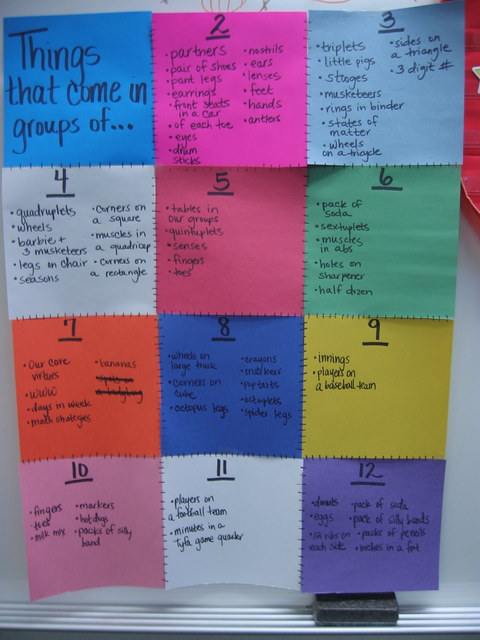 Things
that come in
groups of...
2
• partners
• pair of shoes
• pant legs
• earrings
• front seats
in a car
• of each toe
• eyes
• drum
sticks
• nostrils
• ears
• lenses
• feet
• hands
• antlers
3
• triplets
• little pigs
• stooges
• musketeers
• rings in binder
• states of
matter
• wheels
on a tricycle
• sides on
a triangle
• 3 digit #
4
• quadruplets
• wheels
• barbie +
3 musketeers
• legs on chair
• seasons
• corners on
a square
• muscles in
a quadricep
• corners on
a rectangle
5
• tables in
our groups
• quintuplets
• senses
• fingers
• toes
6
• pack of
soda
• sextuplets
• muscles
in abs
• holes on
sharpener
• half dozen
7
• Our core
virtues
• WUW
• days in week
• math strategies
• bananas
• spots on
a ladybug
8
• wheels on
large truck
• corners on
cube
• octopus legs
• crayons
• markers
• poptarts
• octuplets
• spider legs
9
• innings
• players on
a baseball team
10
• fingers
• toes
• milk mix
• markers
• hotdogs
• packs of silly
band
11
• players on
a football team
• minutes in a
game quarter
12
• donuts
• eggs
ribs on
each side
• pack of soda
• pack of silly bands
• packs of pencils
• inches in a foot